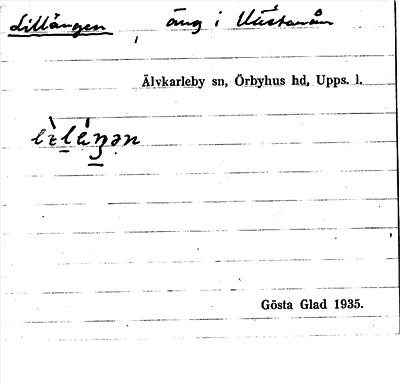 Lillängen äng i Västanån
Älvkarleby sn, Örbyhus hd, Upps. l.
Gösta Glad 1935.